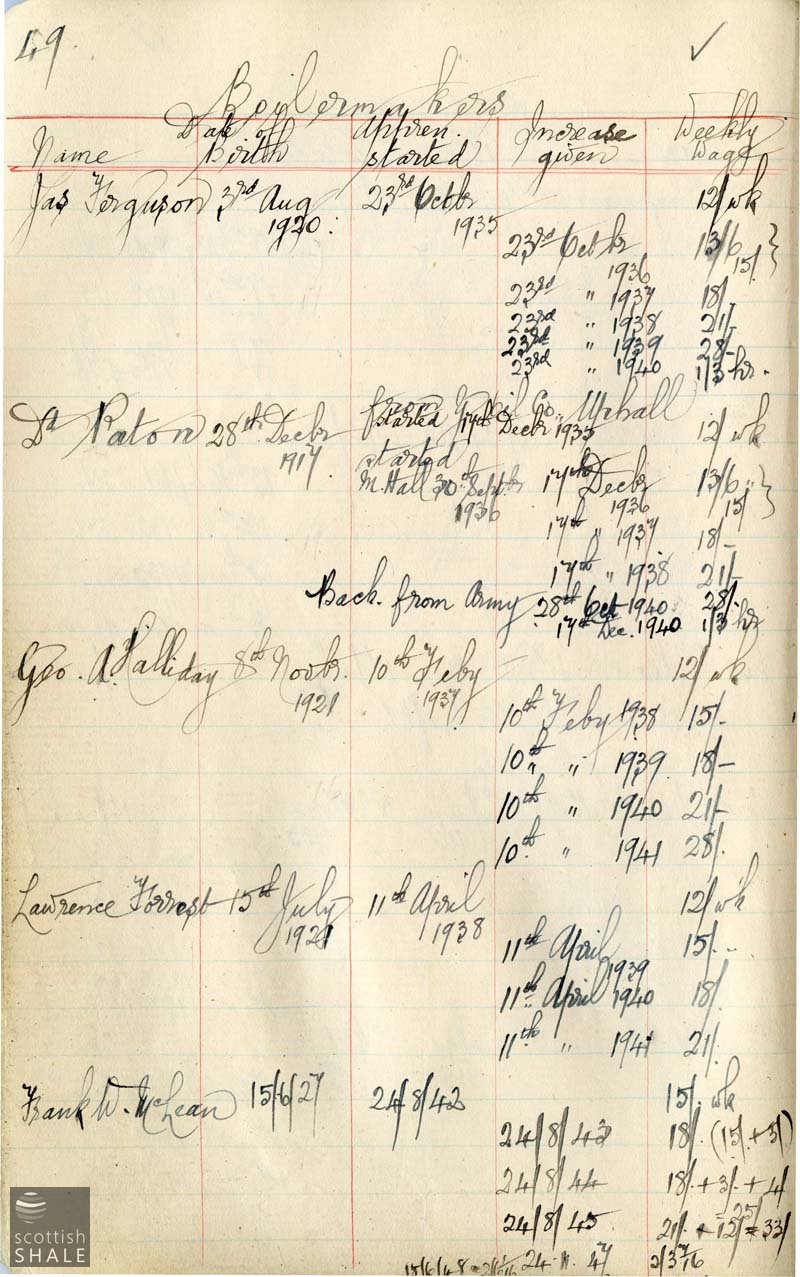 49. ✓
Boilermakers
Name Date of Birth Appren. started Increase given Weekly Wage
Jas Ferguson 3rd Aug 1920. 23rd Octbr 1935 12/ wk
23rd Octbr 1936 13/6 } 15/.
23rd " 1937 18/-
23rd " 1938 21/-
23rd " 1939 28/-
23rd " 1940 1/3 hr.
from Oil Co. Uphall
Dd Paton 28th Decbr 1917 started 17th Decbr 1935 12/ wk
started M. Hall 30th Septbr 1936 17th Decbr 1936 13/6 " } 15/
17th " 1937 18/-
17th " 1938 21/-
Back from Army 28th Oct 1940 28/.
17th Dec. 1940 1/3 hr
Geo. A. Halliday 8th Novbr. 1921 10th Feby 1937 12/ wk
10th Feby 1938 15/-
10th " " 1939 18/-
10th " 1940 21/-
10th " 1941 28/.
Lawrence Forrest 15th July 1921 11th April 1938 12/ wk
11th April 1939 15/-
11th April 1940 18/.
11th " 1941 21/.
Frank W. McLean 15/6/27 24/8/42 15/. wk
24/8/43 18/. (15/. + 3/)
24/8/44 18/. + 3/. + 4/ = 25/
24/8/45 21/. + 12/ = 33/
15/6/48 24. 11. 47 2/3 7/16
scottish
SHALE